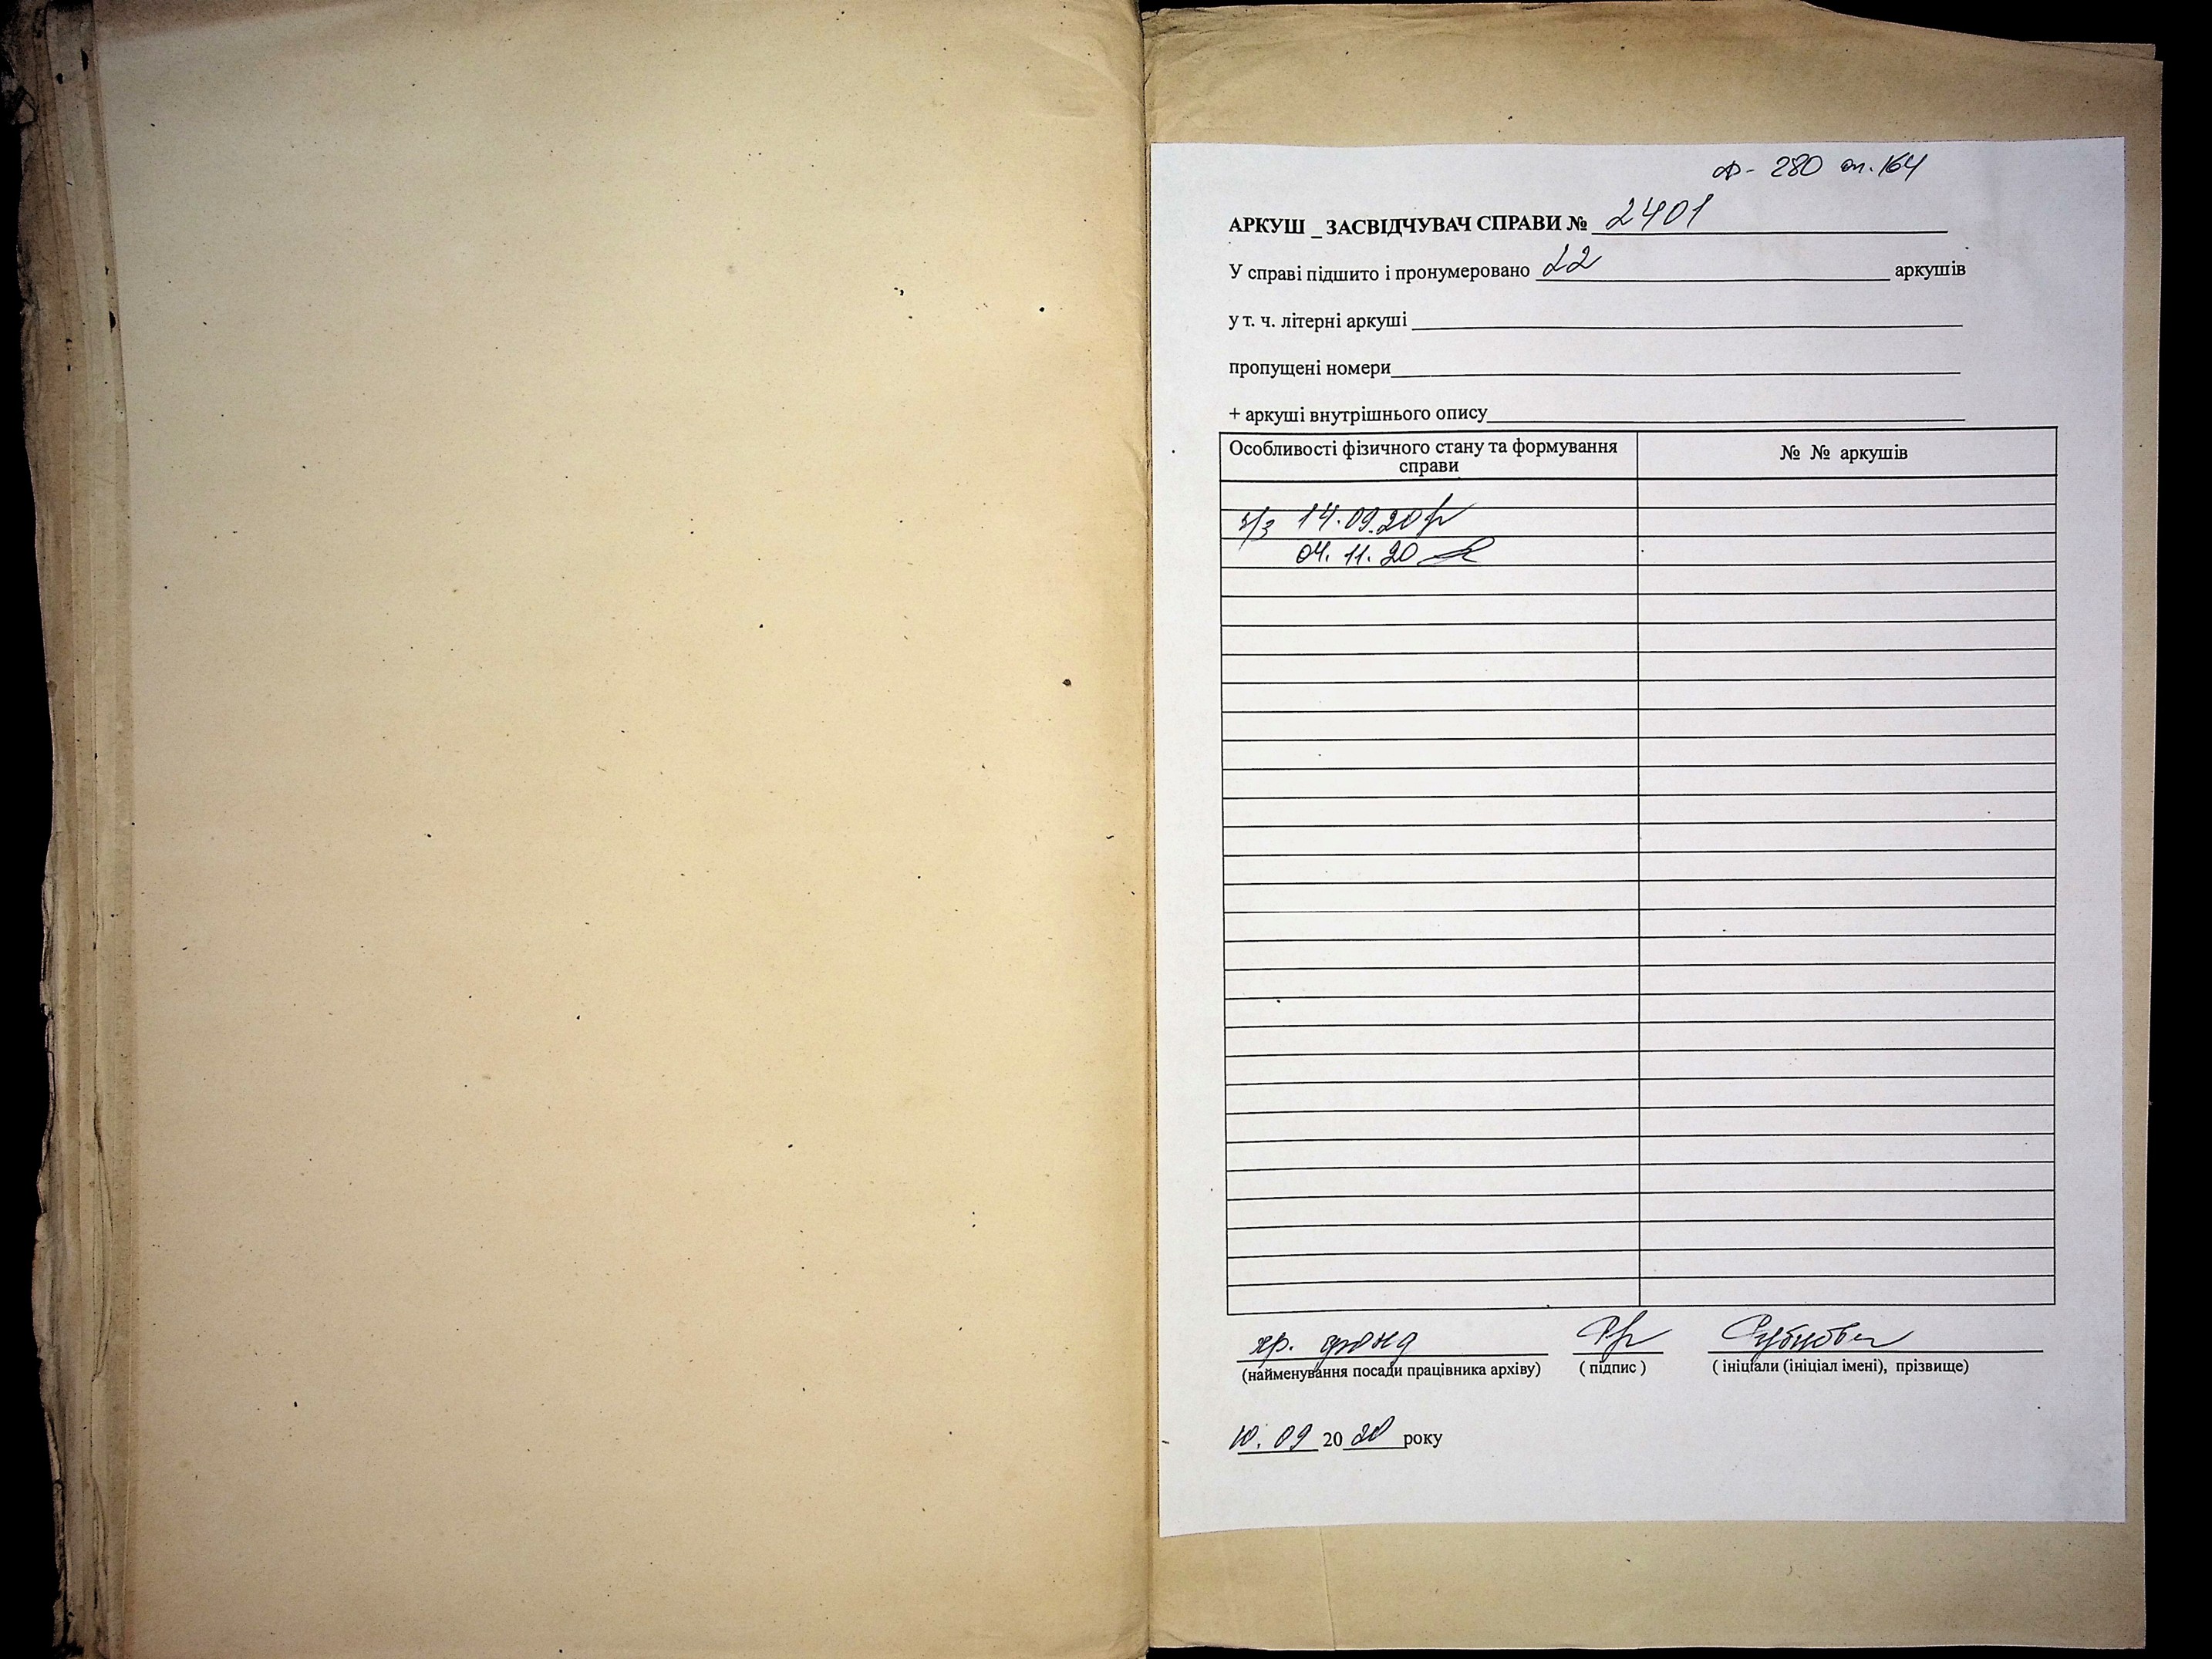 ф- 280 оп. 164
АРКУШ _ ЗАСВІДЧУВАЧ СПРАВИ № 2401
У справі підшито і пронумеровано 22 аркушів
у т. ч. літерні аркуші
пропущені номери
+ аркуші внутрішнього опису
Особливості фізичного стану та формування справи
№ № аркушів
14.09.20
04. 11. 20
хр. фонд
Рубцова
(найменування посади працівника архіву) ( підпис ) ( ініціали (ініціал імені), прізвище)
10. 09 2020 року